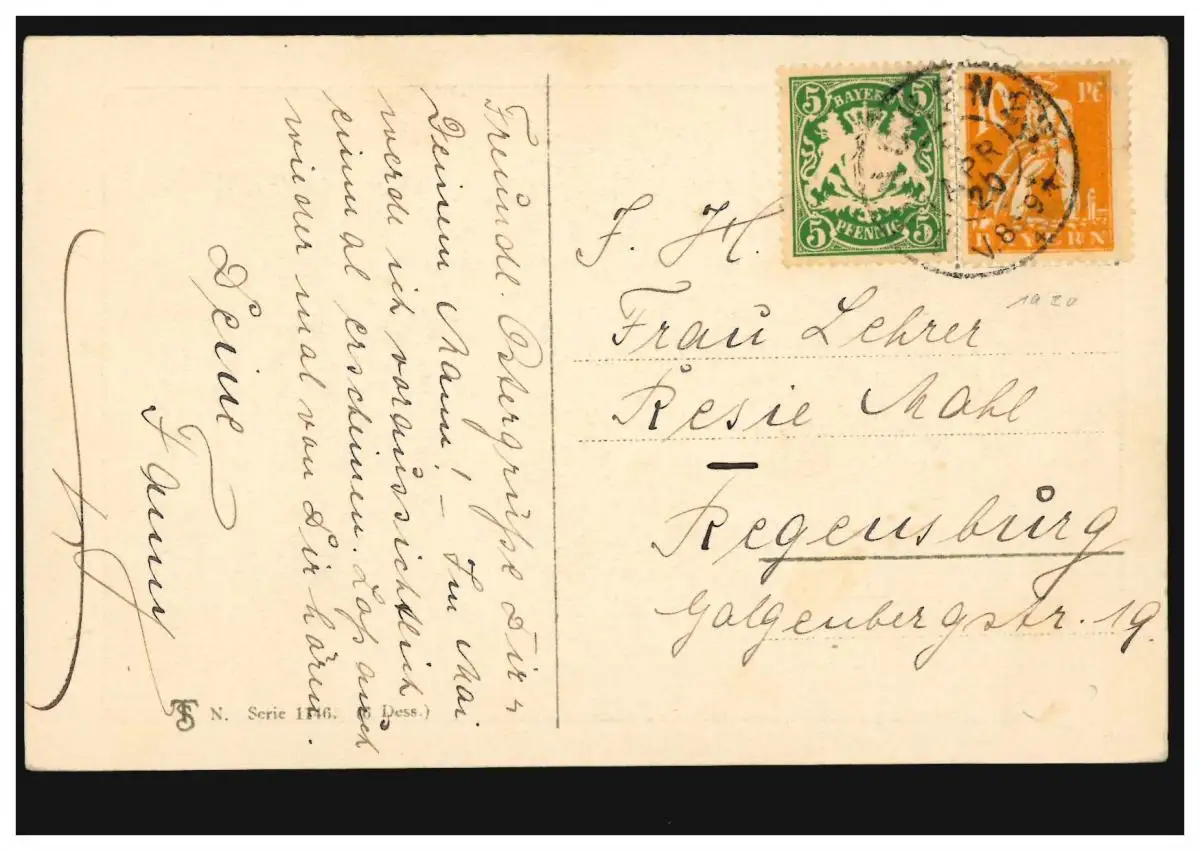 Freundl. Ostergrüße Dir u
Deinem Mann! – Im Mai
werde ich voraussichtlich
einmal erscheinen. Laß auch
wieder mal von Dir hören.
Deine
Fanny
N. Serie 1146. (6 Dess.)
5 BAYERN 5
5 PFENNIG 5
10 Pf
BAYERN
APR
20
V 8-9
J. H.
Frau Lehrer
Resie Mahl
Regensburg
Galgenbergstr. 19.
1920